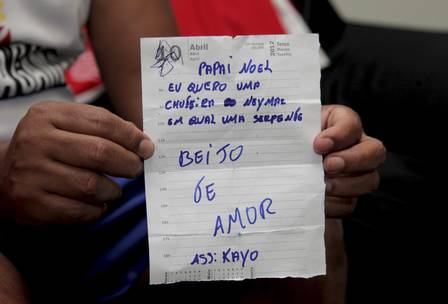 Abril
Terça
2012
PAPAI NOEL
EU QUERO UMA
CHUTEIRA DO NEYMAR
EM QUAL UMA SERPENTE
BEIJO
DE
AMOR
ASS: KAYO